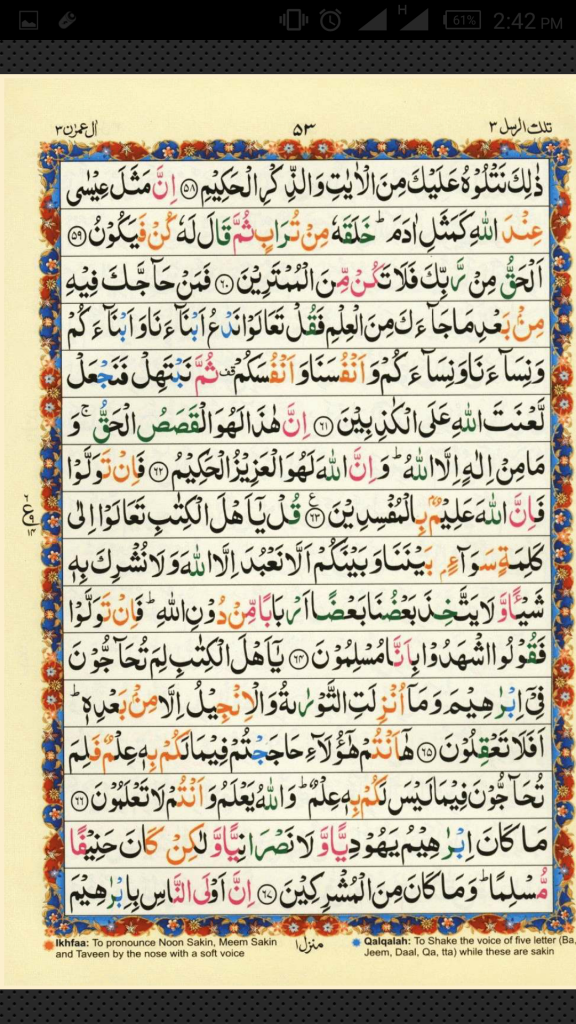 61% 2:42 PM
H
تلك الرسل ٣
٥٣
اٰل عمرٰن ٣
ذٰلِكَ نَتْلُوْهُ عَلَيْكَ مِنَ الْاٰيٰتِ وَالذِّكْرِ الْحَكِيْمِ ﴿٥٨﴾ اِنَّ مَثَلَ عِيْسٰى
عِنْدَ اللّٰهِ كَمَثَلِ اٰدَمَ ؕ خَلَقَهٗ مِنْ تُرَابٍ ثُمَّ قَالَ لَهٗ كُنْ فَيَكُوْنُ ﴿٥٩﴾
اَلْحَقُّ مِنْ رَّبِّكَ فَلَا تَكُنْ مِّنَ الْمُمْتَرِيْنَ ﴿٦٠﴾ فَمَنْ حَآجَّكَ فِيْهِ
مِنْۢ بَعْدِ مَا جَآءَكَ مِنَ الْعِلْمِ فَقُلْ تَعَالَوْا نَدْعُ اَبْنَآءَنَا وَاَبْنَآءَكُمْ
وَنِسَآءَنَا وَنِسَآءَكُمْ وَاَنْفُسَنَا وَاَنْفُسَكُمْ قف ثُمَّ نَبْتَهِلْ فَنَجْعَلْ
لَّعْنَتَ اللّٰهِ عَلَى الْكٰذِبِيْنَ ﴿٦١﴾ اِنَّ هٰذَا لَهُوَ الْقَصَصُ الْحَقُّ ۚ وَ
مَا مِنْ اِلٰهٍ اِلَّا اللّٰهُ ؕ وَاِنَّ اللّٰهَ لَهُوَ الْعَزِيْزُ الْحَكِيْمُ ﴿٦٢﴾ فَاِنْ تَوَلَّوْا
فَاِنَّ اللّٰهَ عَلِيْمٌۢ بِالْمُفْسِدِيْنَ ﴿٦٣﴾ ع قُلْ يٰۤاَهْلَ الْكِتٰبِ تَعَالَوْا اِلٰى
كَلِمَةٍ سَوَآءٍۭ بَيْنَنَا وَبَيْنَكُمْ اَلَّا نَعْبُدَ اِلَّا اللّٰهَ وَلَا نُشْرِكَ بِهٖ
شَيْـًٔا وَّلَا يَتَّخِذَ بَعْضُنَا بَعْضًا اَرْبَابًا مِّنْ دُوْنِ اللّٰهِ ؕ فَاِنْ تَوَلَّوْا
فَقُوْلُوا اشْهَدُوْا بِاَنَّا مُسْلِمُوْنَ ﴿٦٤﴾ يٰۤاَهْلَ الْكِتٰبِ لِمَ تُحَآجُّوْنَ
فِيْۤ اِبْرٰهِيْمَ وَمَاۤ اُنْزِلَتِ التَّوْرٰىةُ وَالْاِنْجِيْلُ اِلَّا مِنْۢ بَعْدِهٖ ؕ
اَفَلَا تَعْقِلُوْنَ ﴿٦٥﴾ هٰۤاَنْتُمْ هٰۤؤُلَآءِ حَاجَجْتُمْ فِيْمَا لَكُمْ بِهٖ عِلْمٌ فَلِمَ
تُحَآجُّوْنَ فِيْمَا لَيْسَ لَكُمْ بِهٖ عِلْمٌ ؕ وَاللّٰهُ يَعْلَمُ وَاَنْتُمْ لَا تَعْلَمُوْنَ ﴿٦٦﴾
مَا كَانَ اِبْرٰهِيْمُ يَهُوْدِيًّا وَّلَا نَصْرَانِيًّا وَّلٰكِنْ كَانَ حَنِيْفًا
مُّسْلِمًا ؕ وَمَا كَانَ مِنَ الْمُشْرِكِيْنَ ﴿٦٧﴾ اِنَّ اَوْلَى النَّاسِ بِاِبْرٰهِيْمَ
Ikhfaa: To pronounce Noon Sakin, Meem Sakin
and Taveen by the nose with a soft voice
منزل ١
Qalqalah: To Shake the voice of five letter (Ba,
Jeem, Daal, Qa, tta) while these are sakin